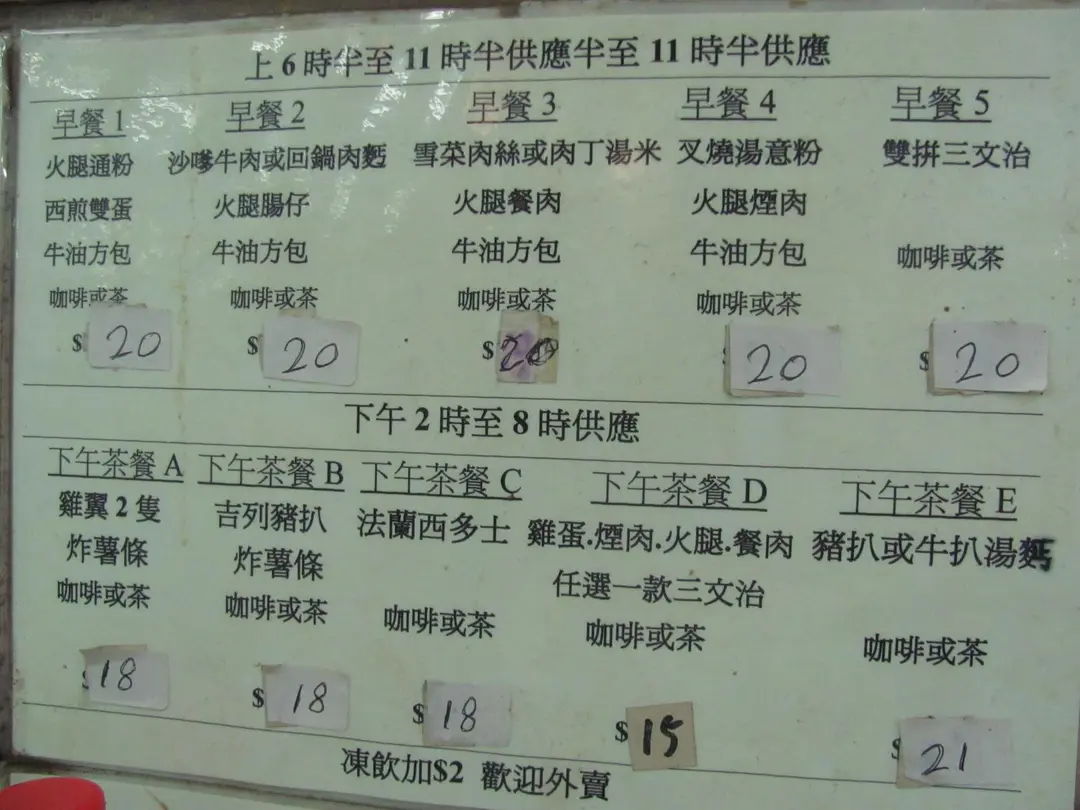 上 6 時半至 11 時半供應半至 11 時半供應
早餐 1
火腿通粉
西煎雙蛋
牛油方包
咖啡或茶
$ 20
早餐 2
沙嗲牛肉或回鍋肉麵
火腿腸仔
牛油方包
咖啡或茶
$ 20
早餐 3
雪菜肉絲或肉丁湯米
火腿餐肉
牛油方包
咖啡或茶
$ 20
早餐 4
叉燒湯意粉
火腿煙肉
牛油方包
咖啡或茶
20
早餐 5
雙拼三文治
咖啡或茶
$ 20
下午 2 時至 8 時供應
下午茶餐 A
雞翼 2 隻
炸薯條
咖啡或茶
$ 18
下午茶餐 B
吉列豬扒
炸薯條
咖啡或茶
$ 18
下午茶餐 C
法蘭西多士
咖啡或茶
$ 18
下午茶餐 D
雞蛋.煙肉.火腿.餐肉
任選一款三文治
咖啡或茶
$ 15
下午茶餐 E
豬扒或牛扒湯麵
咖啡或茶
$ 21
凍飲加$2 歡迎外賣